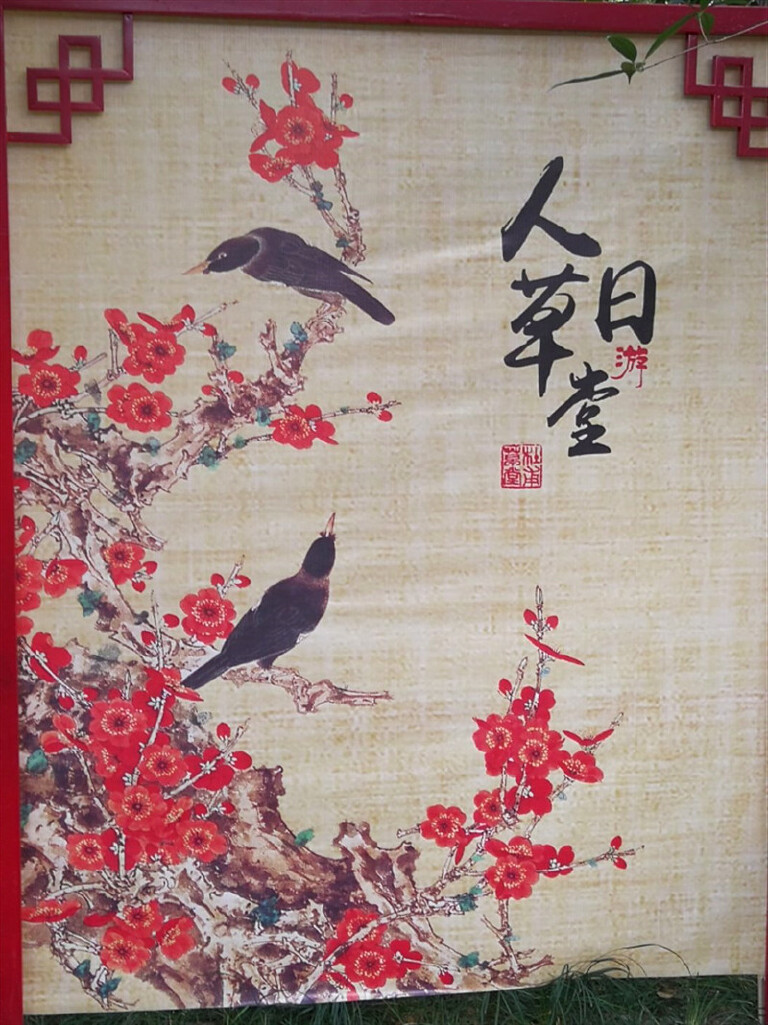 人日游
草堂
杜甫草堂